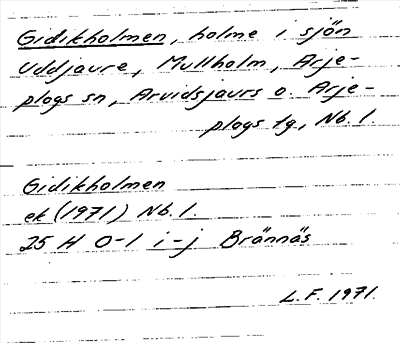 Gidikholmen, holme i sjön
Uddjaure, Mullholm, Arje-
plogs sn, Arvidsjaurs o. Arje-
plogs tg, Nb. l.
Gidikholmen
ek (1971) Nb. l.
25 H 0-1 i-j Brännäs
L.F. 1971.